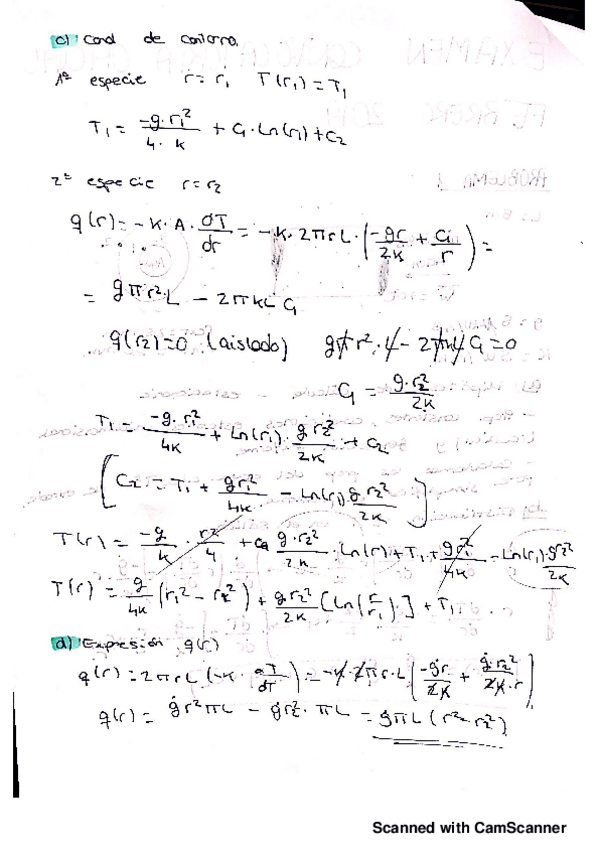 c) Cond de contorno.
1ª especie r = r₁ T(r₁) = T₁
T₁ = -g·r₁²/4·k + C₁·Ln(r₁) + C₂
2ª especie r = r₂
q(r) = -k·A·dT/dr = -k·2πrL·(-gr/2k + C₁/r) =
= gπr²L - 2πkL C₁
q(r₂) = 0 (aislado) gπr²·L - 2πkL C₁ = 0
C₁ = g·r₂²/2k
T₁ = -g·r₁²/4k + Ln(r₁)·gr₂²/2k + C₂
[C₂ = T₁ + gr₁²/4k - Ln(r₁)gr₂²/2k]
T(r) = -g/k · r²/4 + g·r₂²/2k · Ln(r) + T₁ + gr₁²/4k - Ln(r₁)·gr₂²/2k
T(r) = g/4k (r₁² - r₂²) + gr₂²/2k [Ln(r/r₁)] + T₁
d) Expresión q(r)
q(r) = 2πrL (-k·dT/dr) = -k·2πr·L (-gr/2k + g·r₂²/2k·r)
q(r) = gr²πL - gr₂²·πL = gπL (r² - r₂²)
Scanned with CamScanner